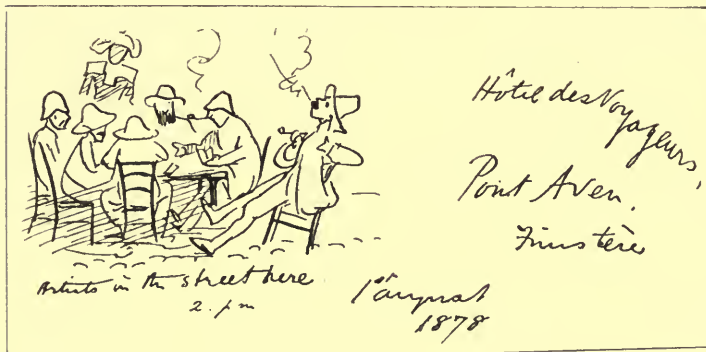 Hôtel des Voyageurs,
Pont Aven.
Finistère
Artists in the street here
2. pm
1st august
1878